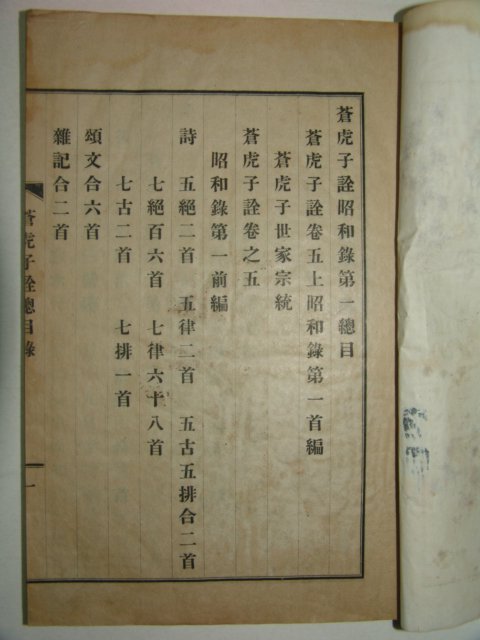 蒼虎子詮昭和錄第一總目
蒼虎子詮卷五上昭和錄第一首編
蒼虎子世家宗統
蒼虎子詮卷之五
昭和錄第一前編
詩 五絕二首 五律二首 五古五排合二首
七絕百六首 七律六十八首
七古二首 七排一首
頌文合六首
雜記合二首
蒼虎子詮總目錄 一